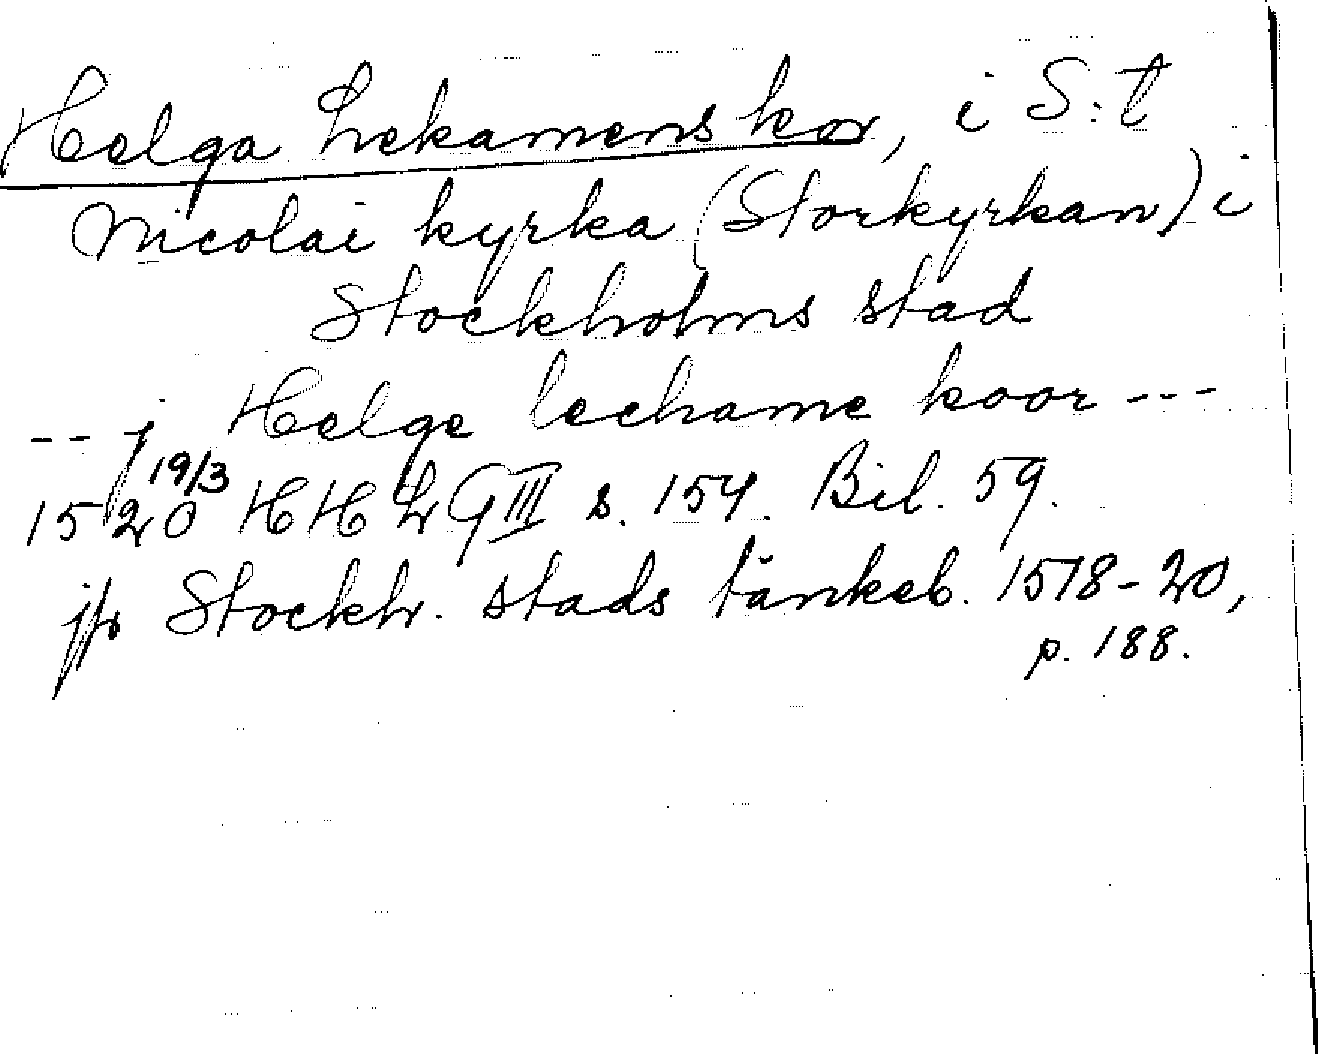 Helga Lekamens kor, i S:t
Nicolai kyrka (Storkyrkan) i
Stockholms stad
-- j Helge lechame koor ---
19/3
1520 HHLG III s. 154. Bil. 59.
jfr Stockh. stads tänkeb. 1518-20,
p. 188.